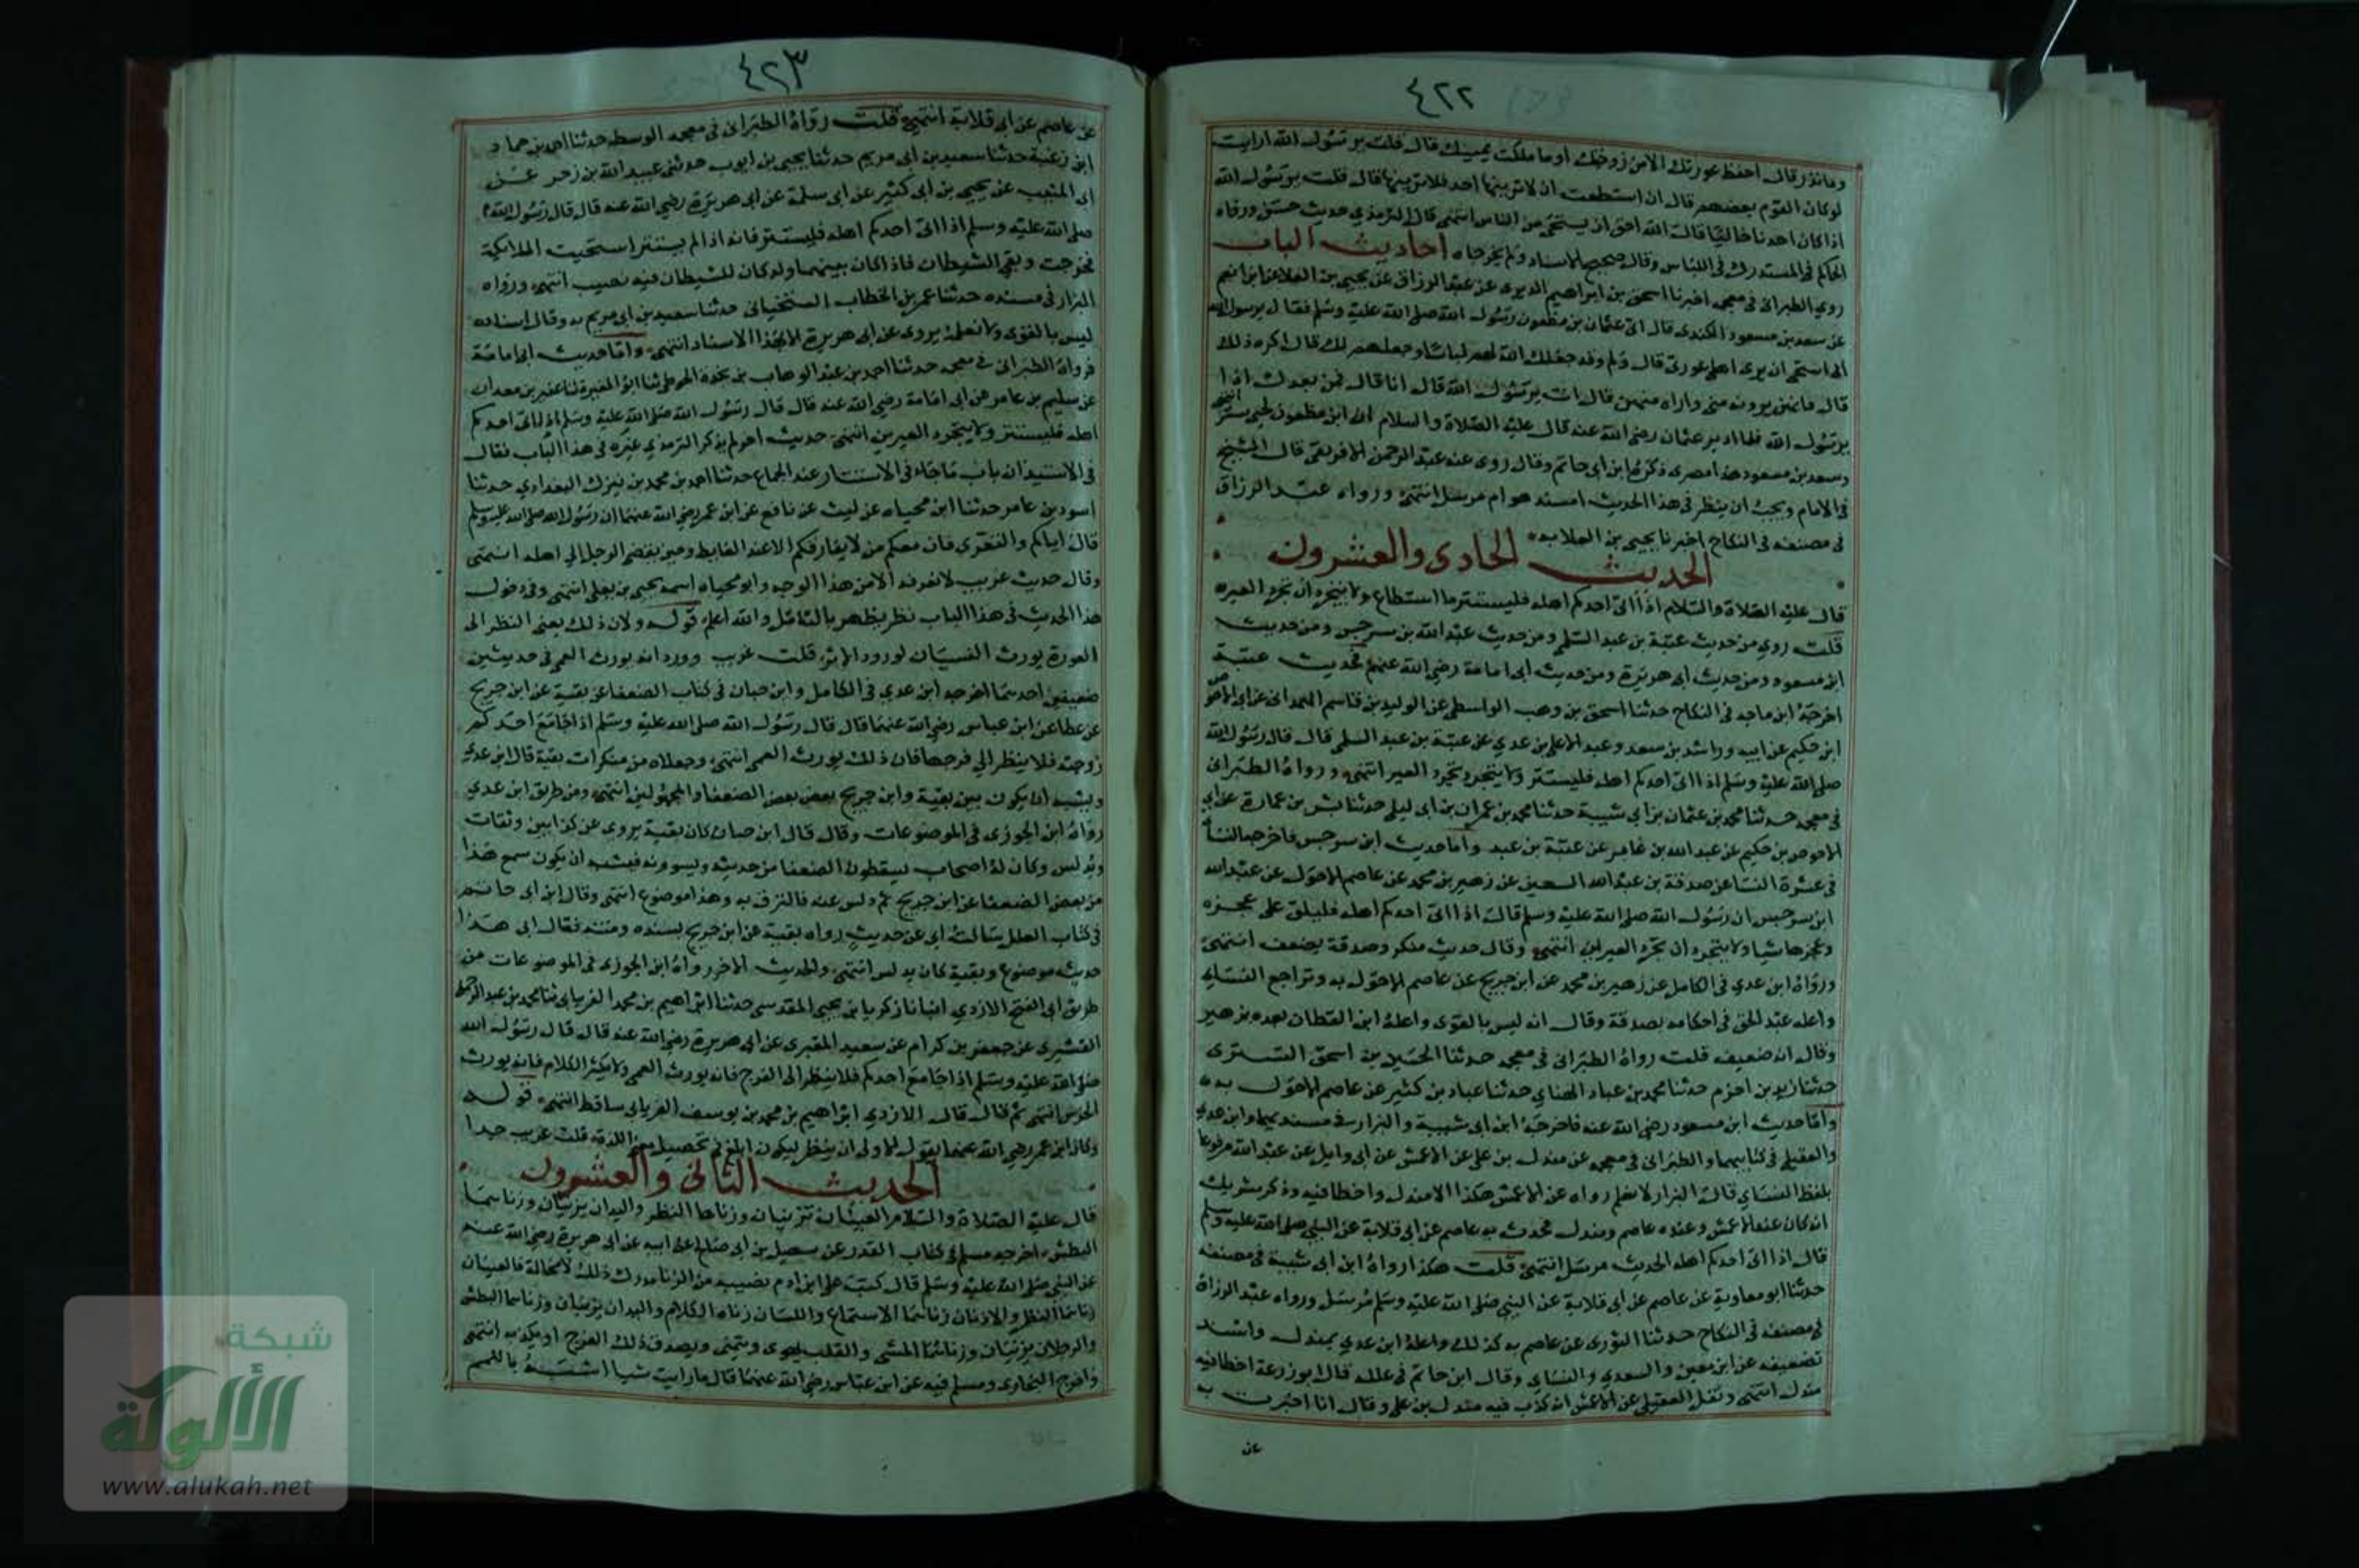 ٤٢٢
وما نذر قال احفظ عورتك الا من زوجتك او ما ملكت يمينك قال قلت يرسول الله ارايت
لو كان القوم بعضهم قال ان استطعت ان لا تريها احد فلا ترينها قال قلت يرسول الله
اذا كان احدنا خاليا قال الله احق ان يستحي من الناس انتهى قال الترمذي حديث حسن ورواه
الحاكم في المستدرك في اللباس وقال صحيح الاسناد ولم يخرجاه احاديث الباب
روى الطبراني في معجمه اخبرنا اسحق بن ابراهيم الدبري عن عبد الرزاق عن يحيى بن العلا عن ابن انعم
عن سعد بن مسعود الكندي قال اتى عثمان بن مظعون رسول الله صلى الله عليه وسلم فقال يرسول الله
اني استحي ان يرى اهلي عورتي قال ولم وقد جعلك الله لهم لباسا وجعلهم لك قال اكره ذلك
قال فانهن يرونه مني واراه منهن قال انت يرسول الله قال انا قال فمن بعدك اذا
يرسول الله فلما ادبر عثمان رضي الله عنه قال عليه الصلاة والسلام ان ابن مظعون لحيي ستير انتهى
وسعد بن مسعود هذا مصري ذكره ابن ابي حاتم وقال روى عنه عبد الرحمن الافريقي قال الشيخ
في الامام ويجب ان ينظر في هذا الحديث امسند هو ام مرسل انتهى ورواه عبد الرزاق
في مصنفه في النكاح اخبرنا يحيى بن العلا به
الحديث الحادي والعشرون
قال عليه الصلاة والسلام اذا اتى احدكم اهله فليستتر ما استطاع ولا يتجردان تجرد العيره
قلت روي من حديث عتبة بن عبد السلمي ومن حديث عبد الله بن سرجس ومن حديث
ابن مسعود ومن حديث ابي هريرة ومن حديث ابي امامة رضي الله عنهم فحديث عتبة
اخرجه ابن ماجه في النكاح حدثنا اسحق بن وهب الواسطي عن الوليد بن قاسم الهمداني عن الاحوص
ابن حكيم عن ابيه وراشد بن سعد وعبد الاعلى بن عدي عن عتبة بن عبد السلمي قال قال رسول الله
صلى الله عليه وسلم اذا اتى احدكم اهله فليستتر ولا يتجرد تجرد العير انتهى ورواه الطبراني
في معجمه حدثنا محمد بن عثمان بن ابي شيبة حدثنا محمد بن عمران بن ابي ليلى حدثنا بشر بن عمارة عن
الاحوص بن حكيم عن عبد الله بن غامر عن عتبة بن عبد واما حديث ابن سرجس فاخرجه النسأ
في عشرة النسا عن صدقة بن عبد الله السمين عن زهير بن محمد عن عاصم الاحول عن عبد الله
ابن سرجس ان رسول الله صلى الله عليه وسلم قال اذا اتى احدكم اهله فليلق على عجزه
وعجزها شيا ولا يتجردان تجرد العيرين انتهى وقال حديث منكر وصدقة يضعف انتهى
ورواه ابن عدي في الكامل عن زهير بن محمد عن ابن جريج عن عاصم الاحول به وتراجع النسائي
واعله عبد الحق في احكامه بصدقة وقال انه ليس بالقوى واعله ابن القطان بعده بزهير
وقال انه ضعيف قلت رواه الطبراني في معجمه حدثنا الحسين بن اسحق التستري
حدثنا زيد بن اخزم حدثنا محمد بن عباد الهنائي حدثنا عباد بن كثير عن عاصم الاحول به
واما حديث ابن مسعود رضي الله عنه فاخرجه ابن ابي شيبة والبزار في مسنديهما وابن عدي
والعقيلي في كتابيهما والطبراني في معجمه عن مندل بن علي عن الاعمش عن ابي وايل عن عبد الله مرفوعا
بلفظ النسائي قال البزار لا نعلم رواه عن الاعمش هكذا الا مندل واخطا فيه وذكر شريك
انه كان عند الاعمش وعنده عاصم ومندل فحدث به عاصم عن ابي قلابة عن النبي صلى الله عليه وسلم
قال اذا اتى احدكم اهله الحديث مرسل انتهى قلت هكذا رواه ابن ابي شيبة في مصنفه
حدثنا ابو معاوية عن عاصم عن ابي قلابة عن النبي صلى الله عليه وسلم مرسل ورواه عبد الرزاق
في مصنفه في النكاح حدثنا الثوري عن عاصم به كذلك واعله ابن عدي بمندل واسند
تضعيفه عن ابن معين والسعدي والنسائي وقال ابن حاتم في علله قال ابو زرعة اخطا فيه
مندل انتهى ونقل العقيلي عن الاعمش انه كذب فيه مندل بن علي وقال انا اخبرت به
عن
٤٢٣
عن عاصم عن ابي قلابة انتهى قلت رواه الطبراني في معجمه الوسط حدثنا احمد بن حماد
ابن زغبة حدثنا سعيد بن ابي مريم حدثنا يحيى بن ايوب حدثني عبيد الله بن زحر عن
ابي المنيب عن يحيى بن ابي كثير عن ابي سلمة عن ابي هريرة رضي الله عنه قال قال رسول الله
صلى الله عليه وسلم اذا اتى احدكم اهله فليستتر فانه اذا لم يستتر استحيت الملائكة
فخرجت وبقي الشيطان فاذا كان بينهما ولد كان للشيطان فيه نصيب انتهى ورواه
البزار في مسنده حدثنا عمر بن الخطاب السختياني حدثنا سعيد بن ابي مريم به وقال اسناده
ليس بالقوى ولا نعلمه يروى عن ابي هريرة الا بهذا الاسناد انتهى واما حديث ابي امامة
فرواه الطبراني في معجمه حدثنا احمد بن عبد الوهاب بن نجدة الحوطي ثنا ابو المغيرة ثنا عفير بن معدان
عن سليم بن عامر عن ابي امامة رضي الله عنه قال قال رسول الله صلى الله عليه وسلم اذا اتى احدكم
اهله فليستتر ولا يتجرد العيرين انتهى حديث اخر لم يذكر الترمذي غيره في هذا الباب فقال
في الاستيذان باب ما جاء في الاستتار عند الجماع حدثنا احمد بن محمد بن نيزك البغدادي حدثنا
اسود بن عامر حدثنا ابن محياه عن ليث عن نافع عن ابن عمر رضي الله عنهما ان رسول الله صلى الله عليه وسلم
قال اياكم والتعري فان معكم من لا يفارقكم الا عند الغايط وحين يفضي الرجل الي اهله انتهى
وقال حديث غريب لا نعرفه الا من هذا الوجه وابو محياه اسمه يحيى بن يعلى انتهى وفي دخول
هذا الحديث في هذا الباب نظر يظهر بالتامل والله اعلم قوله ولان ذلك يعني النظر الى
العورة يورث النسيان لورود الاثر قلت غريب وورد انه يورث العمى في حديثين
ضعيفين احدهما اخرجه ابن عدي في الكامل وابن حبان في كتاب الضعفا عن بقية عن ابن جريج
عن عطا عن ابن عباس رضي الله عنهما قال قال رسول الله صلى الله عليه وسلم اذا جامع احدكم
زوجته فلا ينظر الي فرجها فان ذلك يورث العمى انتهى وجعلاه من منكرات بقية قال ابن عدي
ويشبه ان يكون بين بقية وابن جريج بعض بعض الضعفا والمجهولين انتهى ومن طريق ابن عدي
رواه ابن الجوزي في الموضوعات وقال قال ابن حبان كان بقية يروي عن كذابين وثقات
ويدلس وكان له اصحاب يسقطون الضعفا من حديثه ويسوونه فيشبه ان يكون سمع هذا
من بعض الضعفا عن ابن جريج ثم دلس عنه فالتزق به وهذا موضوع انتهى وقال ابن ابي حاتم
في كتاب العلل سالت ابي عن حديث رواه بقية عن ابن جريج بسنده ومتنه فقال ابي هذا
حديث موضوع وبقية كان يدلس انتهى والحديث الاخر رواه ابن الجوزي في الموضوعات من
طريق ابي الفتح الازدي انبانا زكريا بن يحيى المقدسي حدثنا ابراهيم بن محمد الفريابي ثنا محمد بن عبد الرحمن
القشيري عن جعفر بن كرام عن سعيد المقبري عن ابي هريرة رضي الله عنه قال قال رسول الله
صلى الله عليه وسلم اذا جامع احدكم فلا ينظر الى الفرج فانه يورث العمى ولا يكثر الكلام فانه يورث
الخرس انتهى ثم قال قال الازدي ابراهيم بن محمد بن يوسف الفريابي ساقط انتهى قوله
وكان ابن عمر رضي الله عنهما يقول الاولى ان ينظر ليكون ابلغ في تحصيل معنى اللذة قلت غريب جدا
الحديث الثاني والعشرون
قال عليه الصلاة والسلام العينان تزنيان وزناهما النظر واليدان يزنيان وزناهما
البطش اخرجه مسلم في كتاب القدر عن سهيل بن ابي صالح عن ابيه عن ابي هريرة رضي الله عنه
عن النبي صلى الله عليه وسلم قال كتب على ابن ادم نصيبه من الزنا مدرك ذلك لا محالة فالعينان
زناهما النظر والاذنان زناهما الاستماع واللسان زناه الكلام واليدان يزنيان وزناهما البطش
والرجلان يزنيان وزناهما المشي والقلب يهوى ويتمنى ويصدق ذلك الفرج او يكذبه انتهى
واخرج البخاري ومسلم فيه عن ابن عباس رضي الله عنهما قال ما رايت شيا اشبه باللمم
شبكة
الألوكة
www.alukah.net